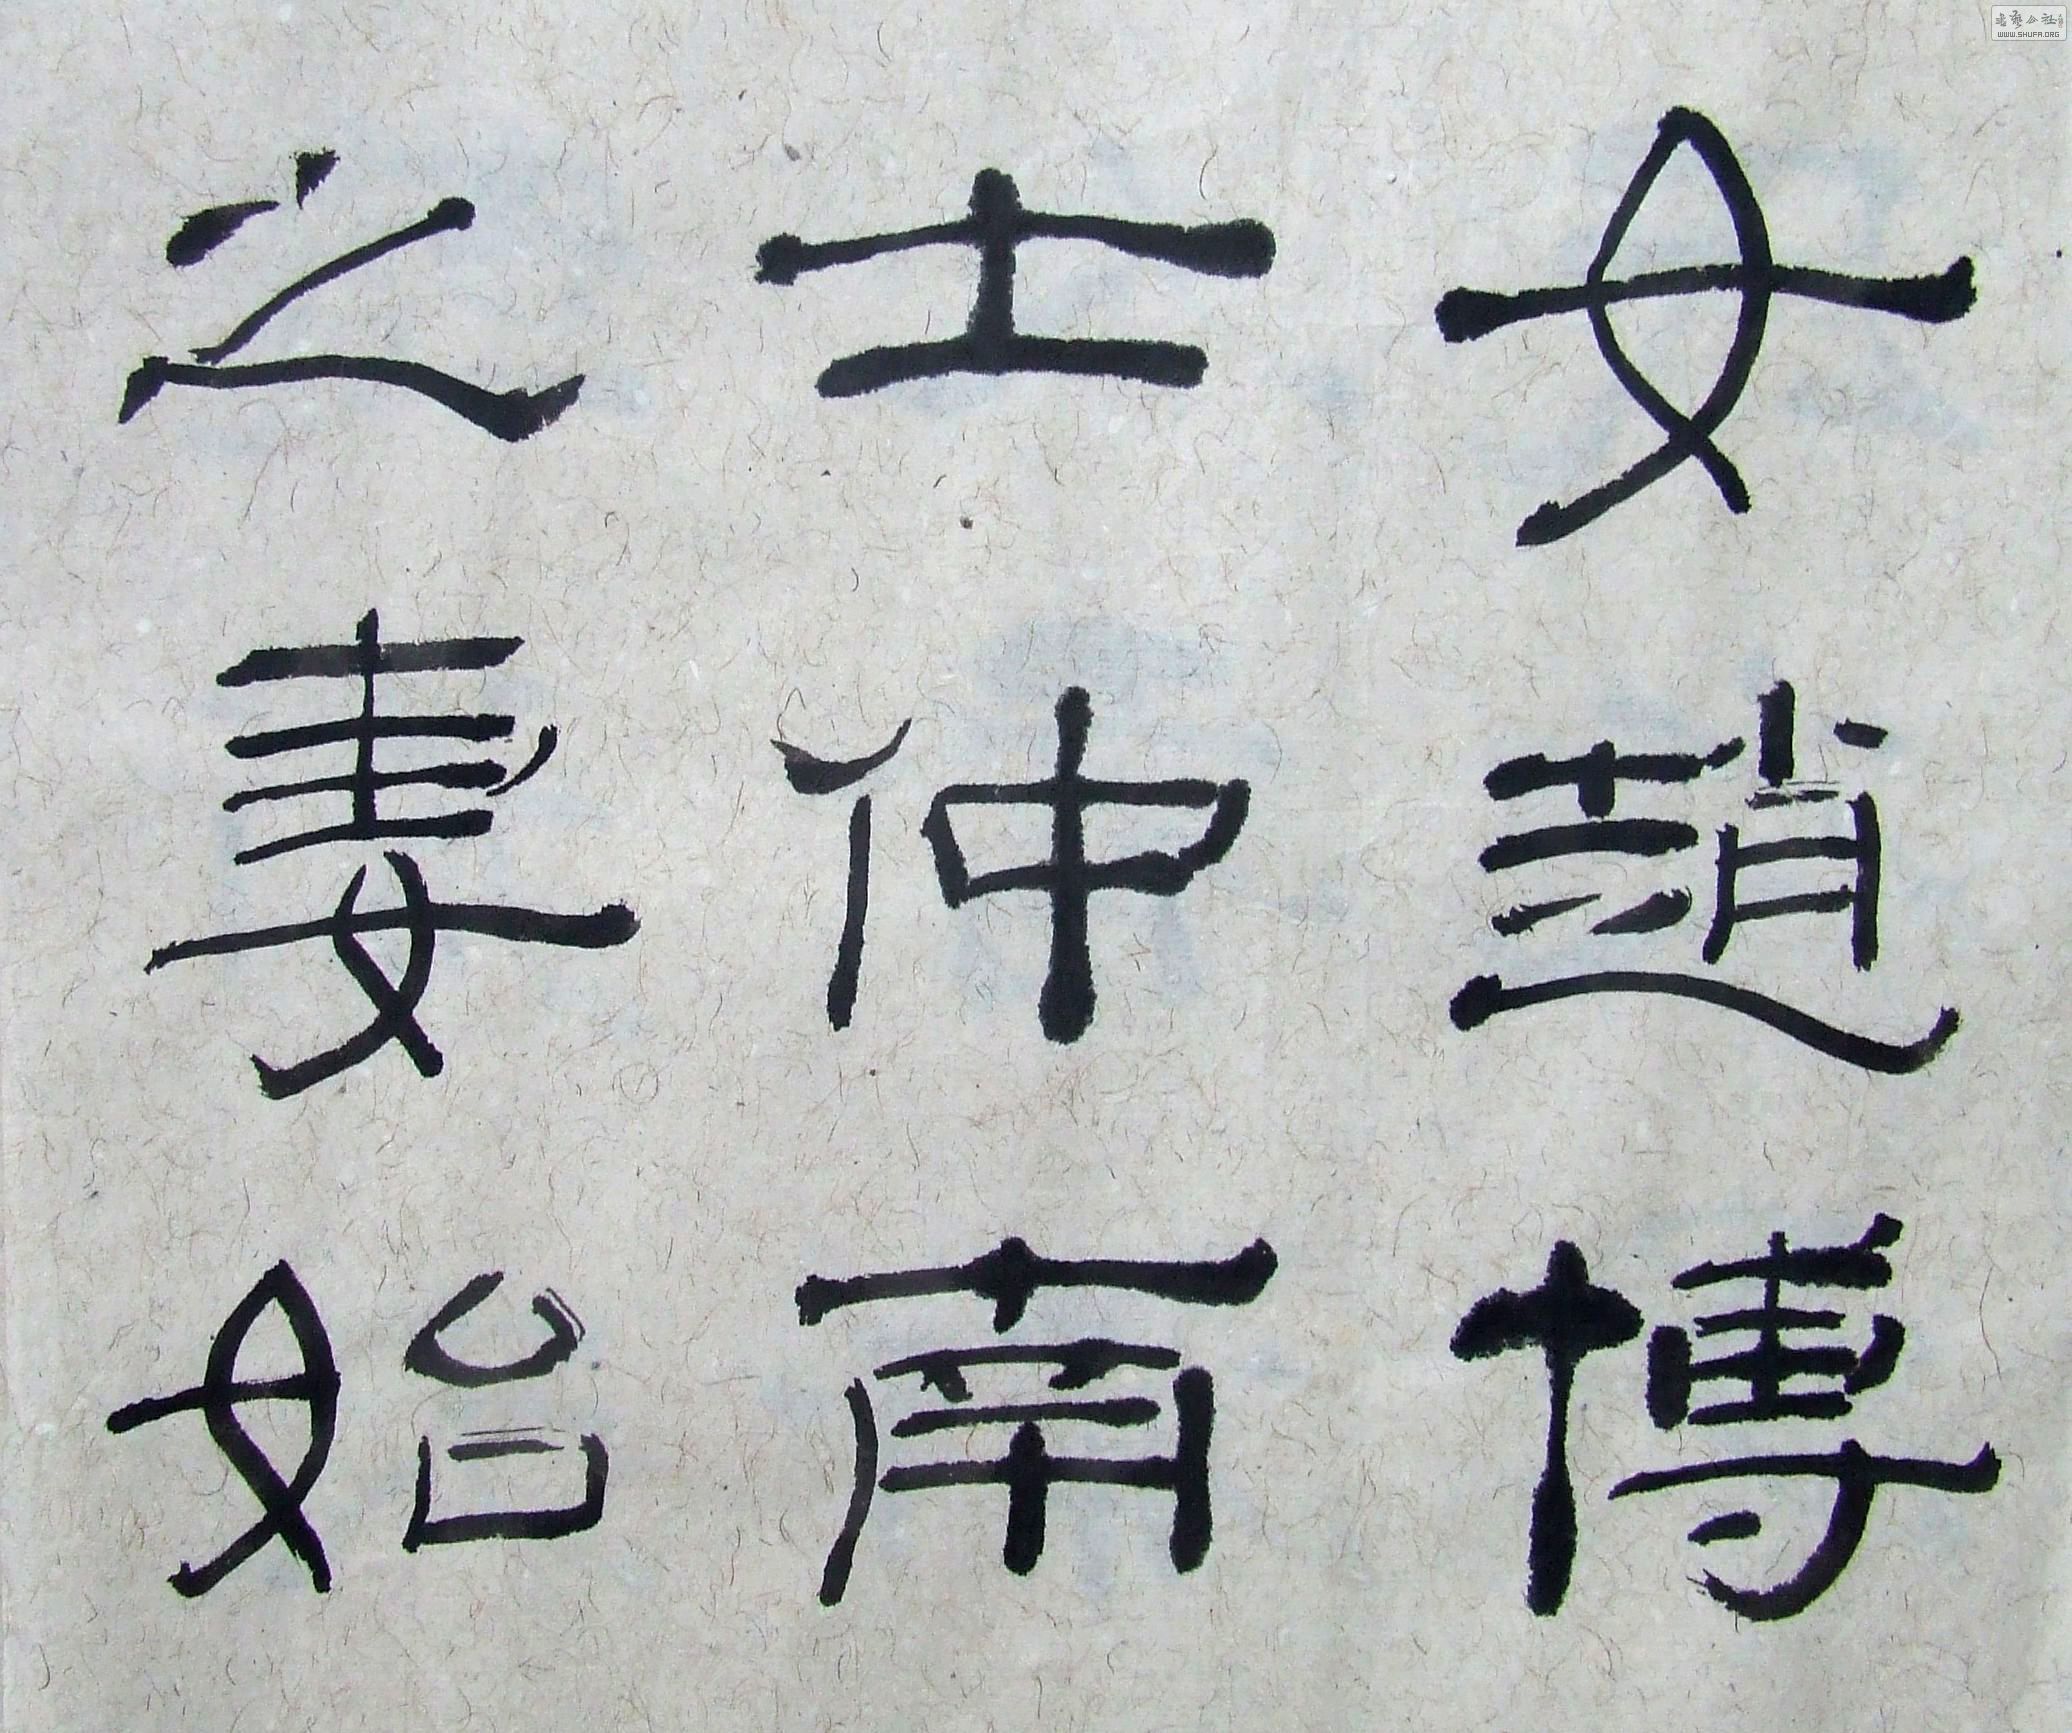 女趙博
士仲南
之妻始
书艺公社
WWW.SHUFA.ORG